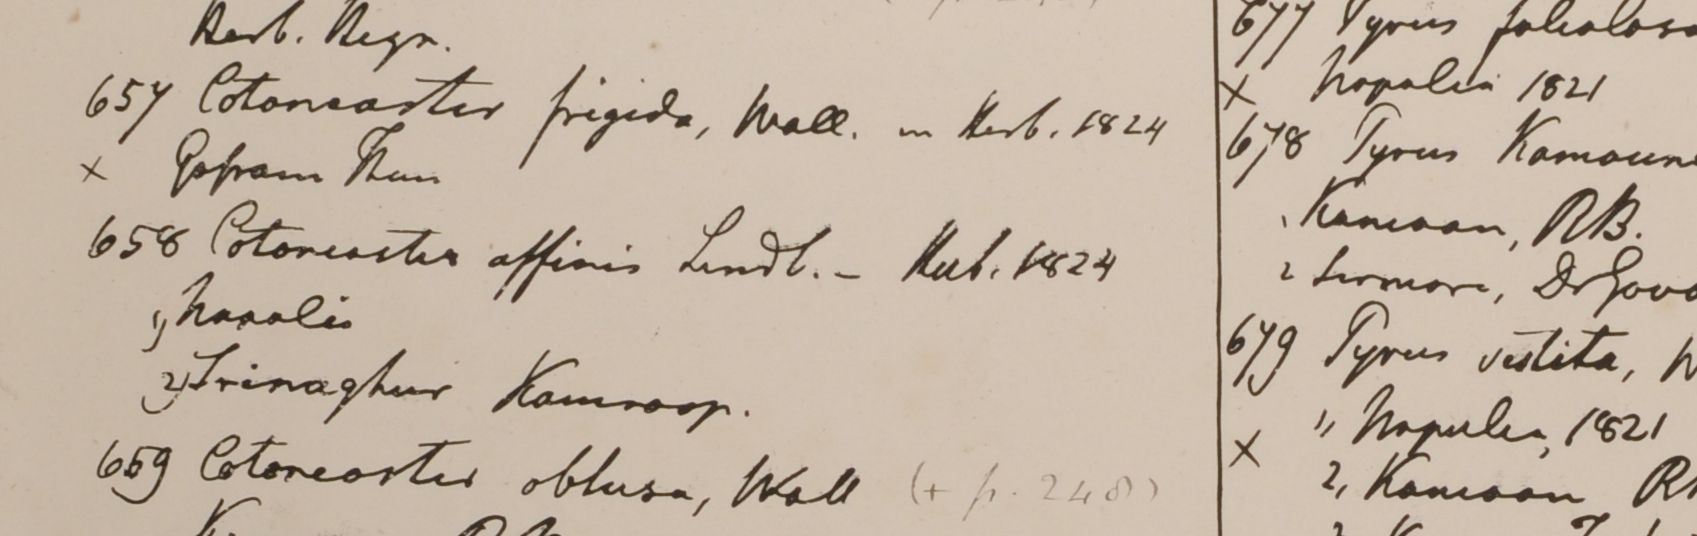 Herb. Regr.
657 Cotoneaster frigida, Wall. in Herb. 1824
x Gosram Than
658 Cotoneaster affinis Lindl. – Herb. 1824
1) Napalia
2) Srinaghur Kamroop.
659 Cotoneaster obtusa, Wall (+ p. 248)
677 Pyrus foliolosa
x Napalia 1821
678 Pyrus Kamaune
1 Kamaon, RB.
2 Sirmore, Dr Gova
679 Pyrus vestita, W
1, Napalia, 1821
x
2, Kamaon R